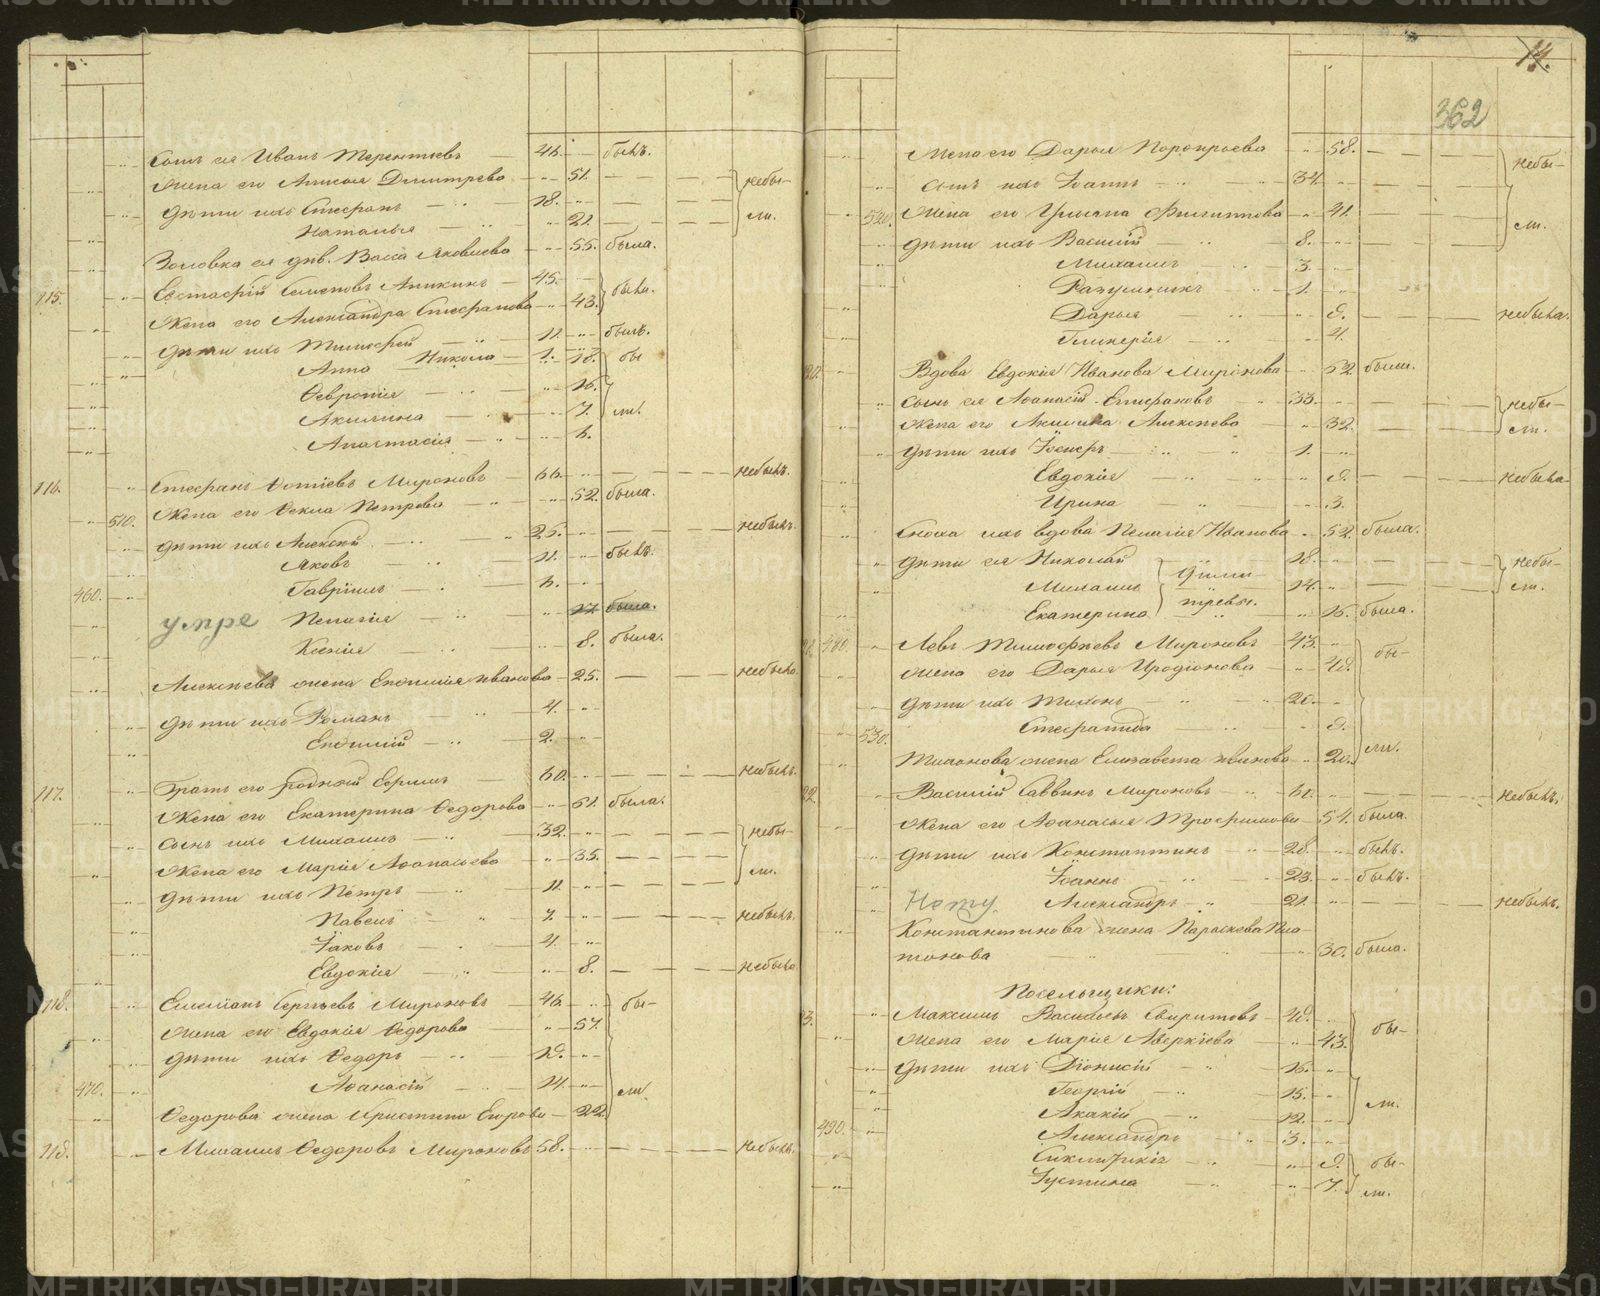 Сынъ ея Иванъ Терентьевъ 46. былъ.
жена его Анисья Дмитрева 51. небы-
дѣти ихъ Стефанъ 18.
Наталья 21. ли.
Золовка ея дѣв. Васса Яковлева 55. была.
115. Евстафій Семеновъ Аникинъ 45.
Жена его Александра Стефанова 43. были.
дѣти ихъ Тимофей 11. былъ.
Никола 1.
Анна 18. бы
Февронія 16.
Акилина 7. ли.
Анастасія
116. Стефанъ Фотіевъ Мироновъ 66. небылъ.
510. Жена его Фекла Петрова 52. была.
дѣти ихъ Алексѣй 25. небылъ.
Яковъ 11. былъ.
460. Гавріилъ
умре Пелагія 17. была.
Ксенія 8. была.
Алексѣева жена Евфимія Иванова 25. небыла.
дѣти ихъ Романъ 4.
Евфимій 2.
117. Братъ его родной Ефимъ 60. небылъ.
Жена его Екатерина Федорова 51. была.
сынъ ихъ Михаилъ 32. небы-
Жена его Марія Афанасьева 35.
дѣти ихъ Петръ 11. ли.
Павелъ 7. небылъ.
Іаковъ 4.
Евдокія 8. небыла
118. Емеліанъ Сергѣевъ Мироновъ 46. бы-
жена его Евдокія Федорова 57.
дѣти ихъ Федоръ 19.
470. Афанасій 14. ли.
Федорова жена Христина Егорова 22.
119. Михаилъ Федоровъ Мироновъ 58. небылъ.
14.
362
Жена его Дарья Порфирьева 58. небы-
сынъ ихъ Іоаннъ 34.
520. Жена его Ульяна Филиппова 41. ли.
дѣти ихъ Василій 8.
Михаилъ 3.
1.
Дарья 9. небыла.
Гликерія 4.
120. Вдова Евдокія Иванова Миронова 52. была.
сынъ ея Афанасій Стефановъ 33. небы-
Жена его Акилина Алексѣева 32. ли.
дѣти ихъ Іосифъ 1.
Евдокія 9. небыла
Ирина 3.
Сноха ихъ вдова Пелагія Иванова 52. была.
дѣти ея Николай 18. небы-
Михаилъ Дими- 14. ли.
Екатерина тревы. 16. была.
480. Левъ Тимофѣевъ Мироновъ 43. бы-
жена его Дарья Иродіонова 49.
дѣти ихъ Тихонъ 20.
530. Стефанида 9.
Тихонова жена Елизавета Иванова 20. ли.
122. Василій Саввинъ Мироновъ небылъ.
Жена его Афанасья Трофимова 54. была.
дѣти ихъ Константинъ 28. былъ.
Іоаннъ 23. былъ.
Александръ 21. небылъ.
Константинова жена Параскева Пла-
тонова 30. была.
Посельщики:
Максимъ Васильевъ Спиритовъ 49.
жена его Марія Аверкіева 43. бы-
дѣти ихъ Діонисій 16.
Георгій 15.
Акакій 12. ли.
490. Александръ 3.
9. бы-
Іустина 7. ли.